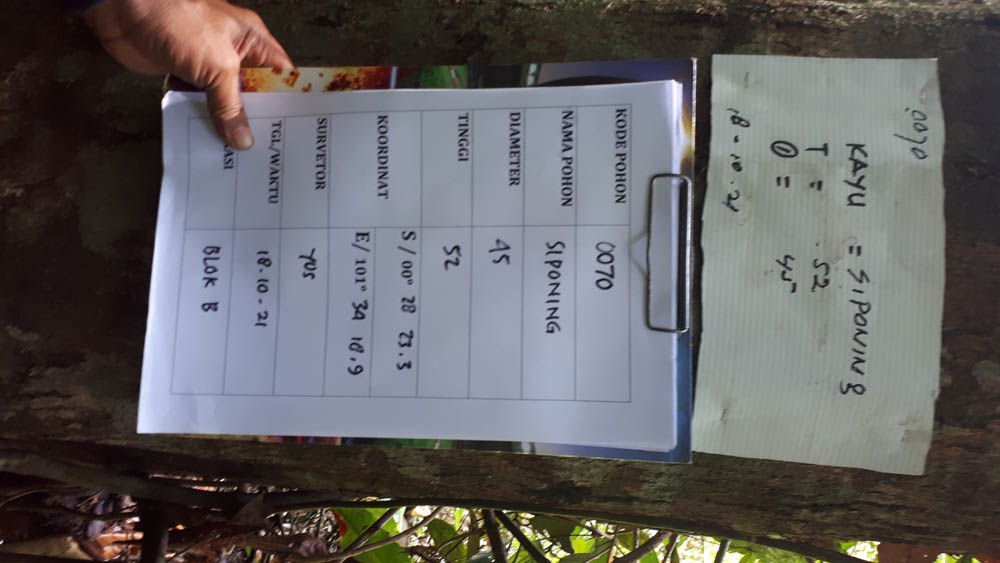 0070
KAYU = SIPONING
T = 52
Ø = 45
18-10-21
KODE POHON 0070
NAMA POHON SIPONING
DIAMETER 45
TINGGI 52
KOORDINAT
S / 00° 28 23.3
E/ 101° 34 18.9
SURVETOR YUS
TGL/WAKTU 18-10-21
ASI BLOK B